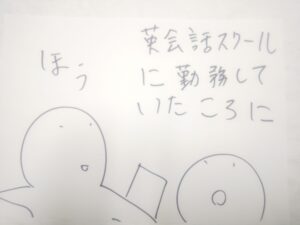 英会話スクール
に勤務して
いたころに
ほう